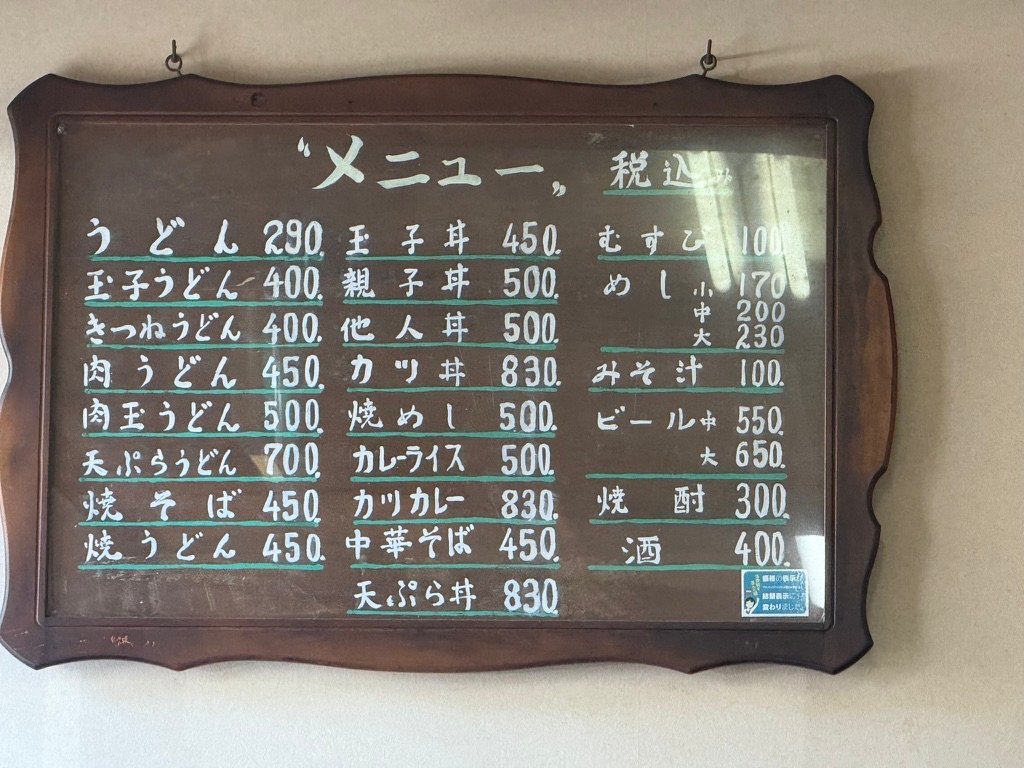 〝メニュー〟 税込み
うどん 290.
玉子うどん 400.
きつねうどん 400.
肉うどん 450.
肉玉うどん 500
天ぷらうどん 700.
焼そば 450.
焼うどん 450.
玉子丼 450.
親子丼 500.
他人丼 500.
カツ丼 830.
焼めし 500.
カレーライス 500.
カツカレー 830.
中華そば 450.
天ぷら丼 830.
むすび 100
めし 小 170
中 200
大 230
みそ汁 100.
ビール 中 550.
大 650.
焼酎 300.
酒 400.
価格の表示が
総額表示に
変わりました。